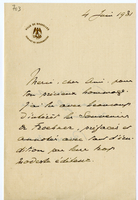 4 Juin 193
Merci, cher ami, pour
ton précieux hommage.
J'ai lu avec beaucoup
d'intérêt les Souvenirs
de Froehner, préfacés et
annotés avec tant d'éru-
dition par leur trop
modeste éditeur.